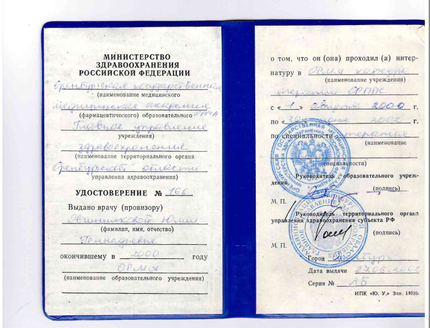 МИНИСТЕРСТВО
ЗДРАВООХРАНЕНИЯ
РОССИЙСКОЙ ФЕДЕРАЦИИ
Оренбургская государственная
(наименование медицинского
медицинская академия
(фармацевтического) образовательного
Главное управление
здравоохранения
(наименование территориального органа
Оренбургской области
управления здравоохранения)
УДОСТОВЕРЕНИЕ № 166
Выдано врачу (провизору)
Юлии
(фамилия, имя, отчество)
окончившему в 2000 году
ОГМА
(наименование образовательного
учреждения)
о том, что он (она) проходил (а) интер-
натуру в ОГМА кафедре
(наименование учреждения)
терапии ФППС
с « 1 » августа 2000 г.
по « г.
по специальности терапия
(наименование
специальности)
Руководитель образовательного учреж-
дения.
(подпись)
М. П.
Руководитель территориального органа
управления здравоохранения субъекта РФ
(подпись)
М. П.
Город Оренбург
Дата выдачи
Серия № АБ